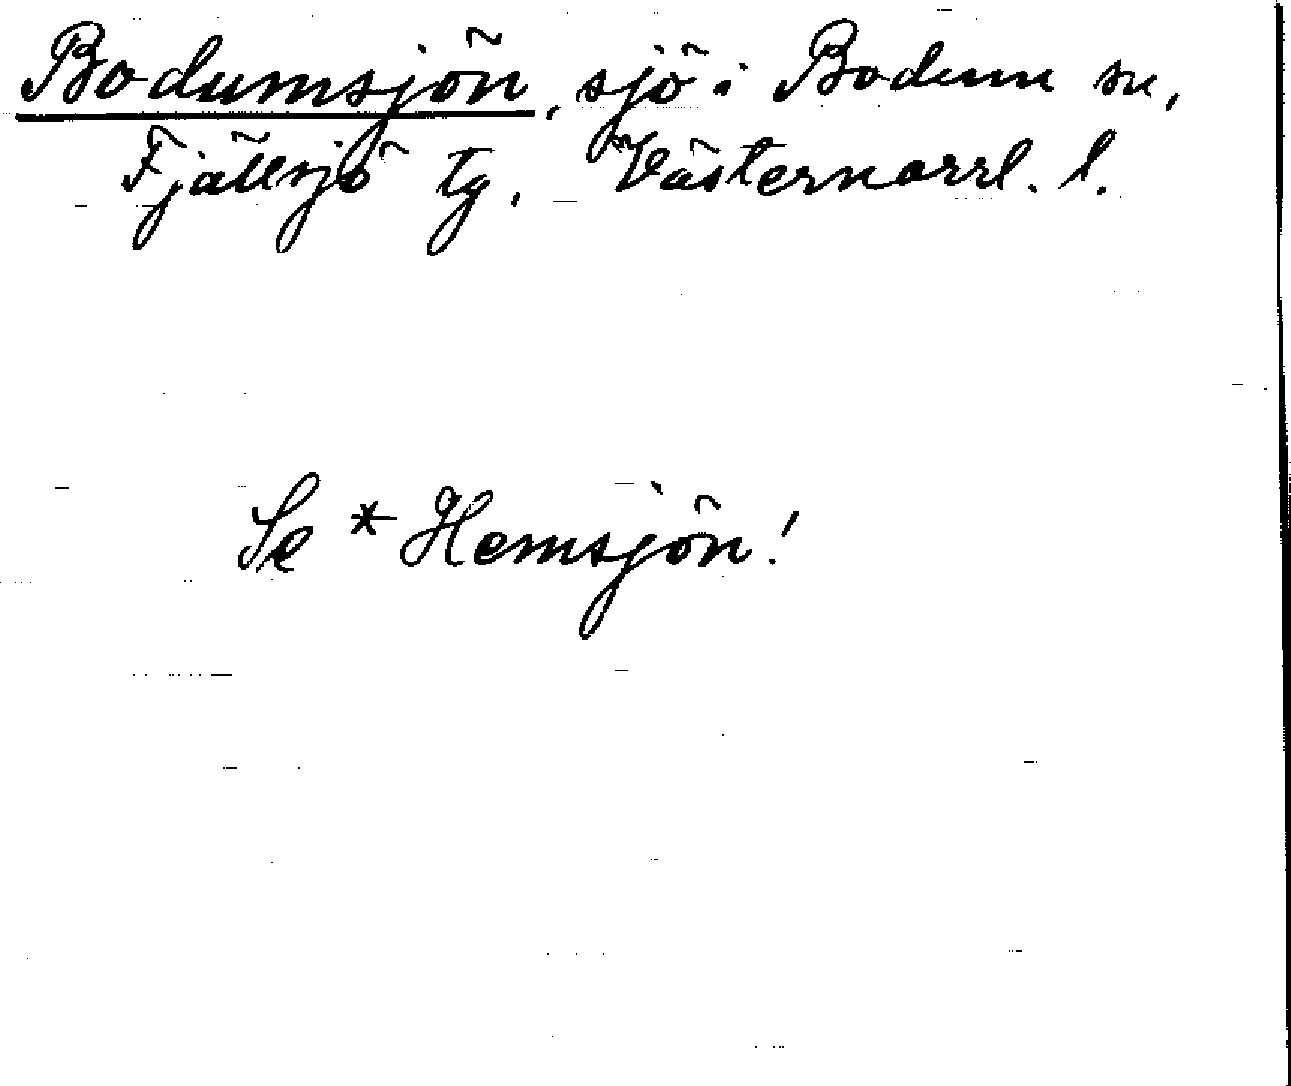 Bodumsjön, sjö i Bodum sn,
Fjällsjö tg, Västernorrl. l.
Se * Hemsjön!